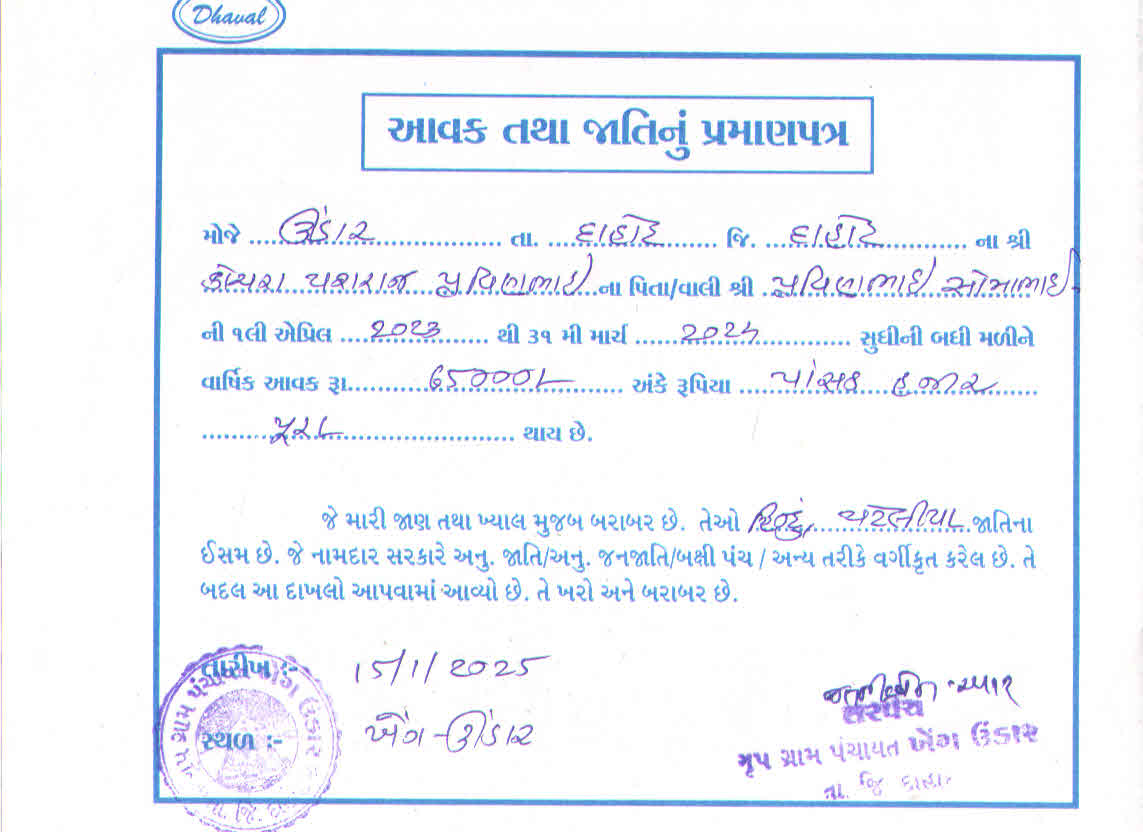 Dhaval
આવક તથા જાતિનું પ્રમાણપત્ર
મોજે ....ઊંડાર.... તા. ....દાહોદ.... જિ. ....દાહોદ.... ના શ્રી
યશરાજ પ્રવિણભાઈ ના પિતા/વાલી શ્રી પ્રવિણભાઈ સોમાભાઈ
ની ૧લી એપ્રિલ ....૨૦૨૩.... થી ૩૧ મી માર્ચ ....૨૦૨૪.... સુધીની બધી મળીને
વાર્ષિક આવક રૂા....૬૫૦૦૦/-.... અંકે રૂપિયા ....પાંસઠ હજાર....
....પુરા.... થાય છે.
જે મારી જાણ તથા ખ્યાલ મુજબ બરાબર છે. તેઓ હિન્દુ, પટેલીયા જાતિના
ઈસમ છે. જે નામદાર સરકારે અનુ. જાતિ/અનુ. જનજાતિ/બક્ષી પંચ / અન્ય તરીકે વર્ગીકૃત કરેલ છે. તે
બદલ આ દાખલો આપવામાં આવ્યો છે. તે ખરો અને બરાબર છે.
તારીખ :- 15/1/2025
સ્થળ :- ખેંગ-ઊંડાર
સરપંચ
ગૃપ ગ્રામ પંચાયત ખેંગ ઉંડાર
તા. જિ. દાહોદ